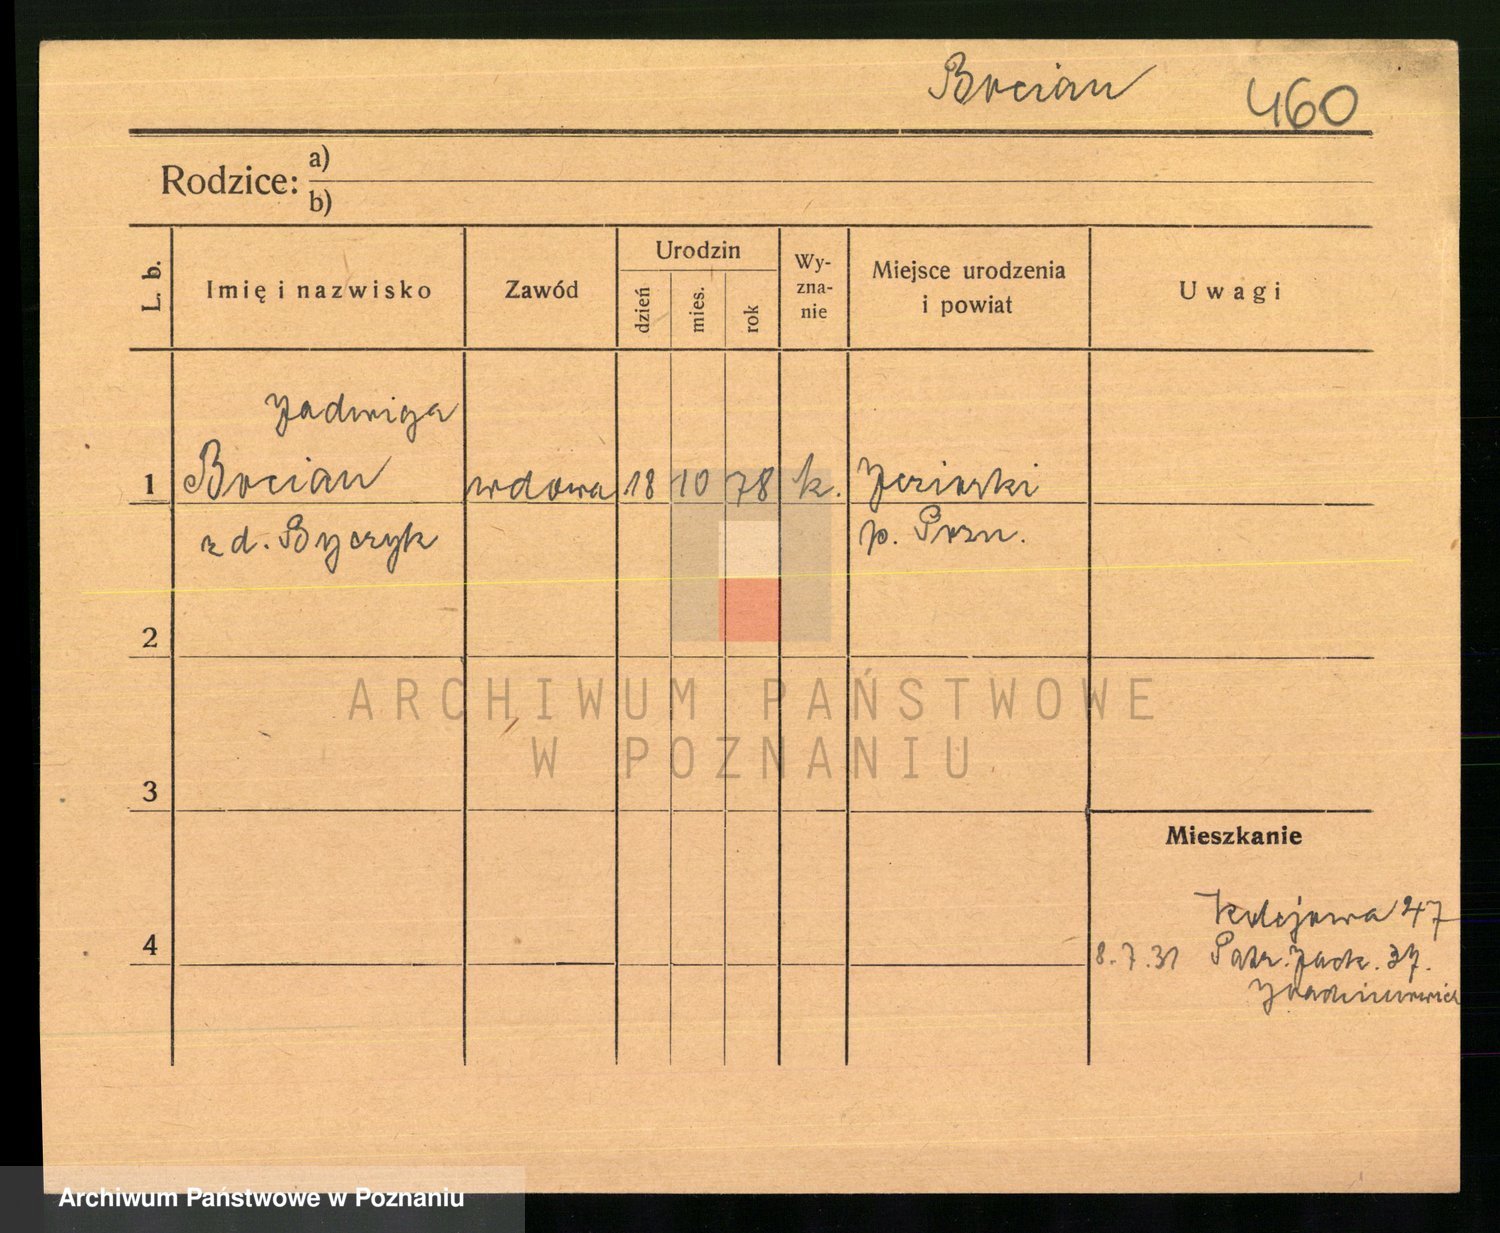 Bocian 460
Rodzice: a)
b)
L. b. Imię i nazwisko Zawód Urodzin dzień mies. rok Wy-zna-nie Miejsce urodzenia i powiat Uwagi
Jadwiga
1 Bocian wdowa 18 10 78 k. Jeziorki
zd. Byczyk p. Pozn.
2
ARCHIWUM PAŃSTWOWE
W POZNANIU
3
Mieszkanie
Kolejowa 47
4
8.7.31 Patr. Jack. 37.
Archiwum Państwowe w Poznaniu